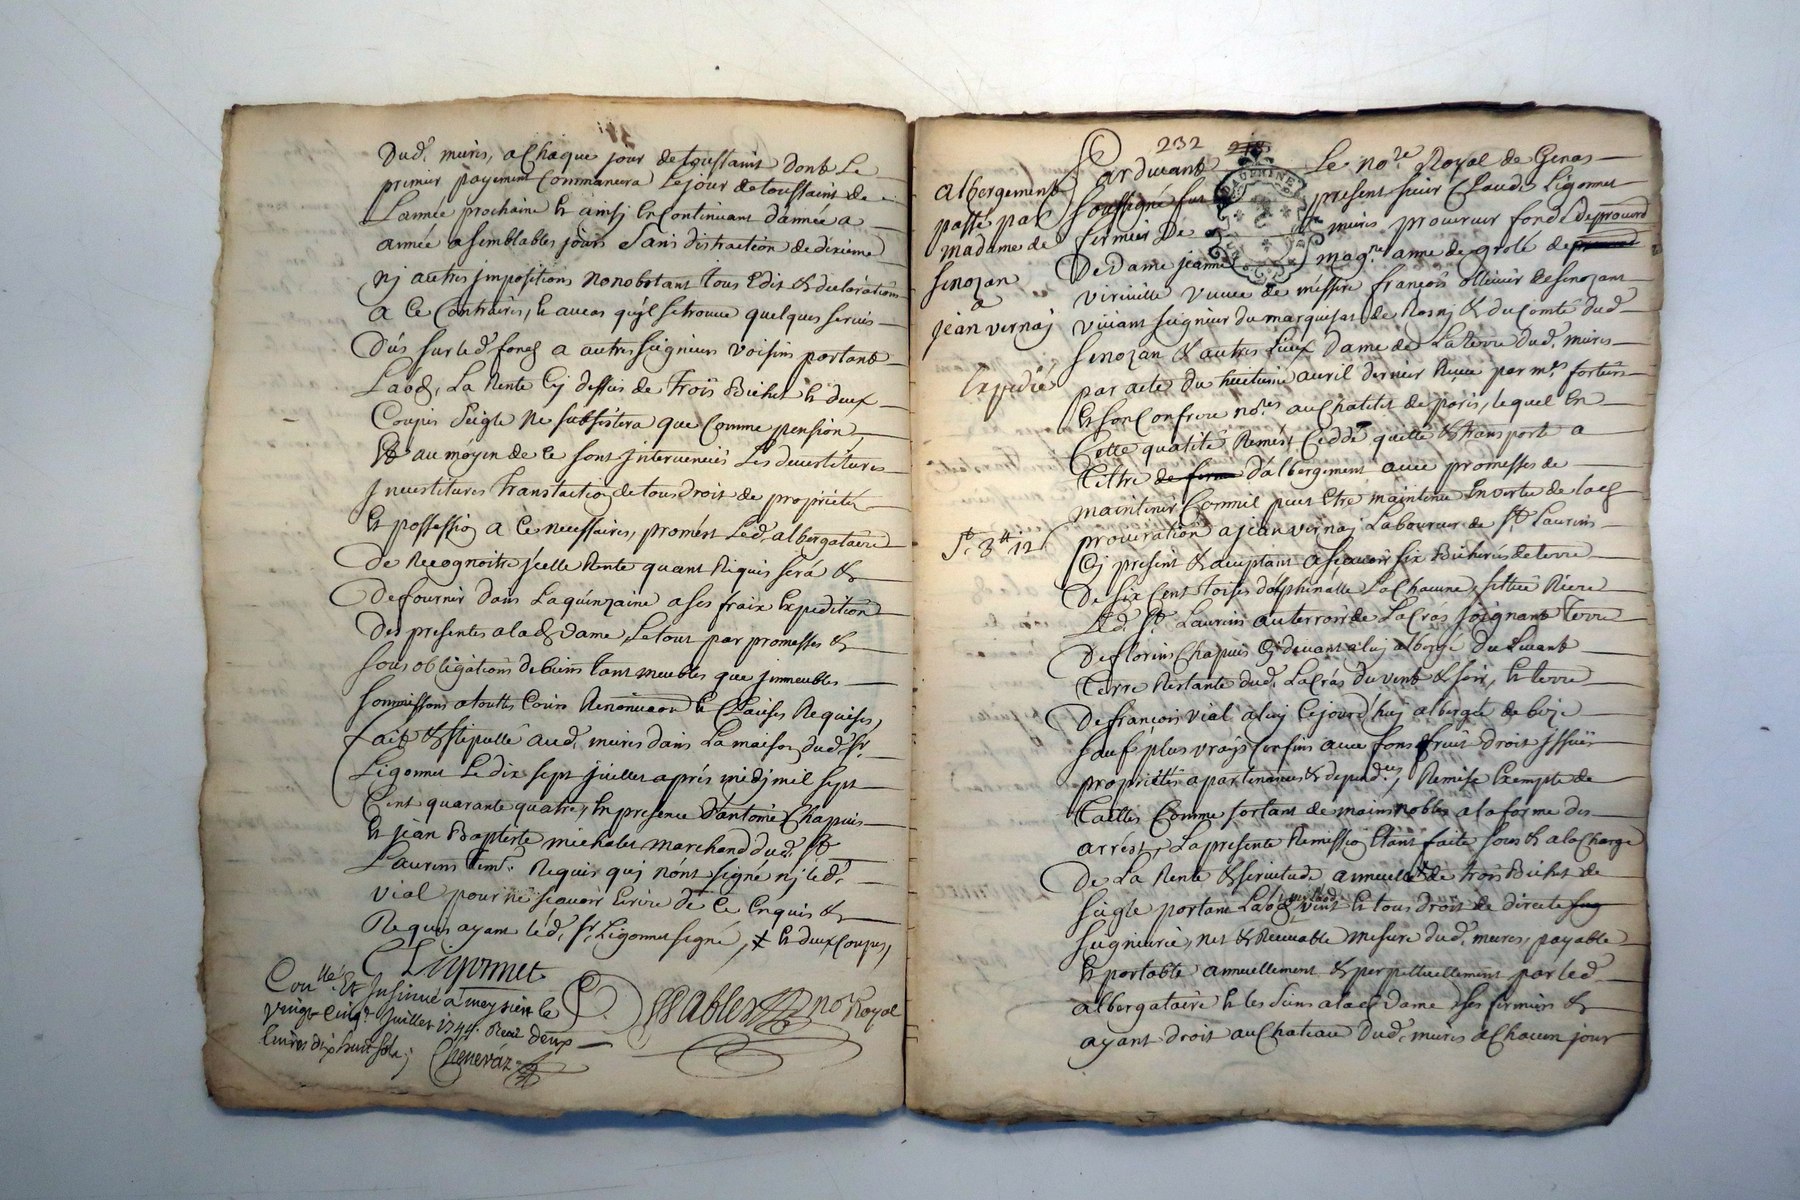 Dud. muris, a Chaque jour de toussaint dont Le
premier payement Commancera Le jour de toussaint de
L'année prochaine et ainsj en Continuant d'année a
année a semblables jours sans distraction de dixieme
nj autres jmpositions nonobstant tous Edit et declarations
a Ce Contraires, et au cas qu'jl se trouve quelques servis
Düs sur led. fond a autres seigneurs voisins portant
Laod, La Rente Cj dessus de trois Bichet et deux
Coupes seigle ne subsistera que Comme pension,
Et au moyen de Ce sont jntervenües Les devestitures
jnvestitures translaction de tous droit de proprieté
et possession a Ce necessaires, promet Led. albergataire
de Recognoitre jcelle Rente quant Requis sera et
de fournir dans La quinzaine a ses fraix Expedition
Des presentes a lad. dame, Le tout par promesses et
sous obligations de biens tant meubles que jmmeubles
soumissions a touttes Cours Renonciaon et Clauses Requises,
fait et stipullé aud. muris dans La maison dud. Sr.
Ligonnet Le dix sept juillet après midj mil sept
Cent quarante quatre, En presence d'antoine Chapuis
et jean Baptiste michalet marchand dud. St.
Laurens tem. Requis quj n'ont signé nj led.
vial pour ne sçavoir Ecrire de Ce Enquis et
Requis ayant led. Sr. Ligonnet signé, + et deux Coupes,
C Ligonnet
Conllé. Et Jnsinué a meyzieu le
vingt cinq. Juillet 1744. Receu deux
livres dix huit sols;
Chenevaz
no. Royal
232
albergement
passé par
madame de
senozan
a
jean vernaj
Expedié
Pardevant Le nore. Royal de Genas
soussigné fut present sieur Claude Ligonnet
fermier de muris procureur fondé de procurõ
DAUPHINE
De Dame jeanne magne. anne de grolé de
viriville veuve de messire françois ollivier de senozant
vivant seigneur du marquisat de Rosnj et du Comté dud.
senozan et autres Lieux Dame de La terre dud. muris
par acte du huitieme avril dernier Reçue par me. fortier
et son Confrere nores. au Chatelet de paris, lequel En
Cette qualité Remet, Cedde quitte et transporte a
tittre de ferme d'albergement avec promesses de
maintenir Comme il peut Etre maintenu En vertu de lad.
procuration a jean vernaj Laboureur de St. Laurens
Cj present et acceptant a sçavoir six Bicherées de terre
De six Cent Toises delphinalle La Chacune, sittuée Riere
Led. St. Laurens au terroir de La Cras joignant terre
De florens Chapuis Cj devant a luj albergé du Levant
terre Restante dud. La Cras du vent et soir, et terre
De françois vial a luj Cejourd'huj albergée de bize
sauf plus vrajs Confins avec fond fruit droit jssües
proprietés apartenances et depend.ces, Remise Exempte de
tailles Comme sortant de mains nobles a la forme des
arrest, La presente Remission Etant faite sous et a la Charge
De La Rente et servitude annuelle de trois Bichet de
seigle portant Laod, et tous droit de directe
seigneurie, net et Recevable mesure dud. muris, payable
et portable annuellement et perpetuellement par led.
albergataire et les siens a lad. dame ses fermiers et
ayant droit au Chateau dud. muris a Chacun jour